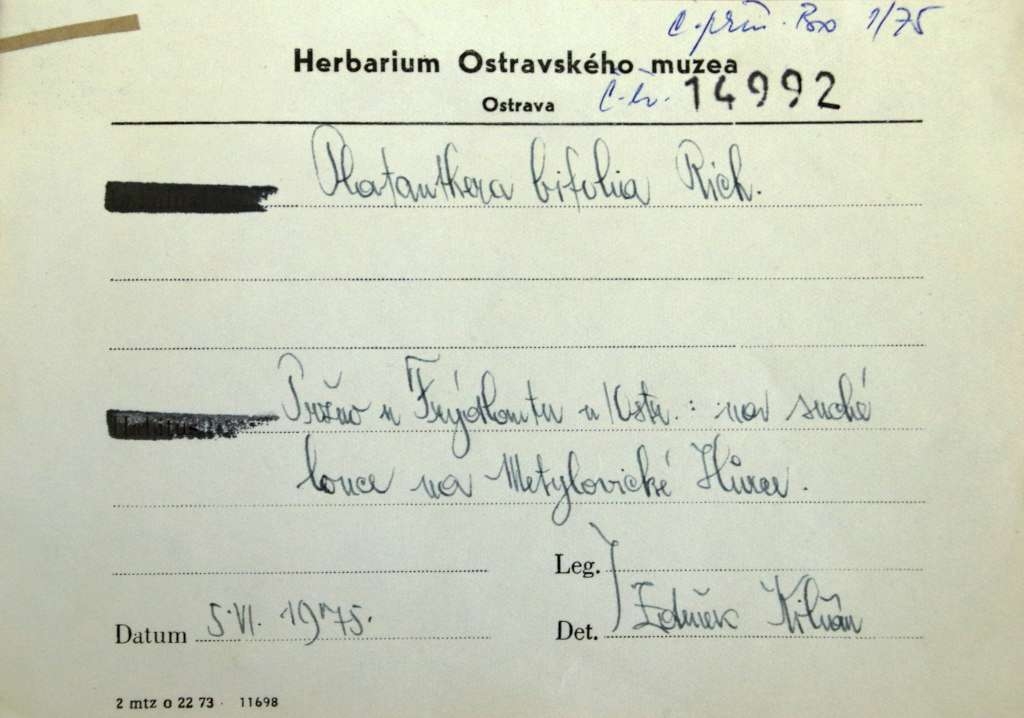 č. přír. Bo 1/75
Herbarium Ostravského muzea
Ostrava č. i. 14992
Platanthera bifolia Rich.
Pržno u Frýdlantu n/Ostr.: na suché
louce na Metylovické Hůrce.
Leg.
Datum 5.VI. 1975. Det. Zdeněk Kilián
2 mtz o 22 73 11698